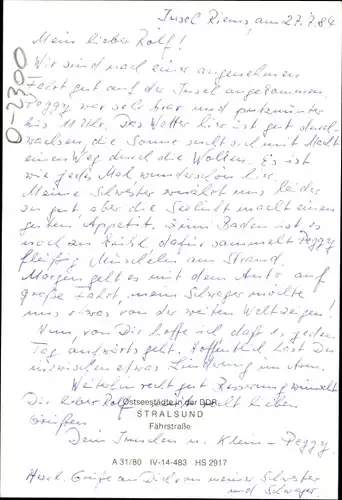 Insel Riems, am 27.7.84
Mein lieber Rolf!
Wir sind nach einer angenehmen
Fahrt gut auf der Insel angekommen.
Peggy war sehr brav und putzmunter
bis 11 Uhr. Das Wetter hier ist gut durch-
wachsen, die Sonne sucht sich mit Macht
einen Weg durch die Wolken. Es ist
wie jedes Mal wunderschön hier.
Meine Schwester ernährt uns leider
zu gut, aber die Seeluft macht einen
guten Appetit. Zum Baden ist es
noch zu kühl, dafür sammelt Peggy
fleißig Muscheln am Strand.
Morgen geht es mit dem Auto auf
große Fahrt, mein Schwager möchte
uns etwas von der weiten Welt zeigen!
Nun, von Dir hoffe ich, daß es jeden
Tag aufwärts geht. Hoffentlich hast Du
inzwischen etwas Linderung im Arm.
Weiterhin recht gut Besserung wünscht
Dir lieber Rolf mit lieben
Grüßen
Dein u. Klein-Peggy.
Herzl. Grüße an Dich von meiner Schwester
und Schwager
0-2300
Ostseestädte in der DDR
STRALSUND
Fährstraße
A 31/80 IV-14-483 HS 2917